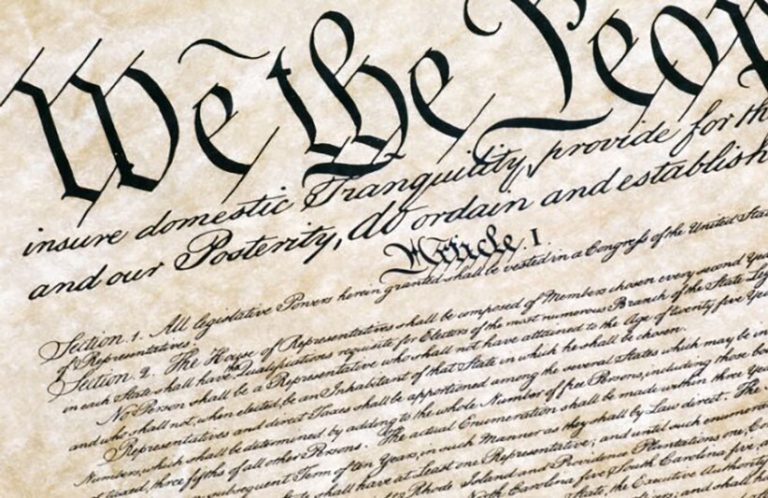 We the Peop
insure domestic Tranquility, provide for th
and our Posterity, do ordain and establish
Article I.
Section 1. All legislative Powers herein granted shall be vested in a Congress of the United Stat
of Representatives.
Section 2. The House of Representatives shall be composed of Members chosen every second Yea
in each State shall have the Qualifications requisite for Electors of the most numerous Branch of the State Leg
No Person shall be a Representative who shall not have attained to the Age of twenty five Yea
and who shall not, when elected, be an Inhabitant of that State in which he shall be chosen.
Representatives and direct Taxes shall be apportioned among the several States which may be in
Numbers, which shall be determined by adding to the whole Number of free Persons, including those bou
three fifths of all other Persons. The actual Enumeration shall be made within three Yea
subsequent Term of ten Years, in such Manner as they shall by Law direct. The
shall have at Least one Representative; and until such enumer
Rhode Island and Providence Plantations one, Co
North Carolina five, South Carolina five, a
State, the Executive Authority